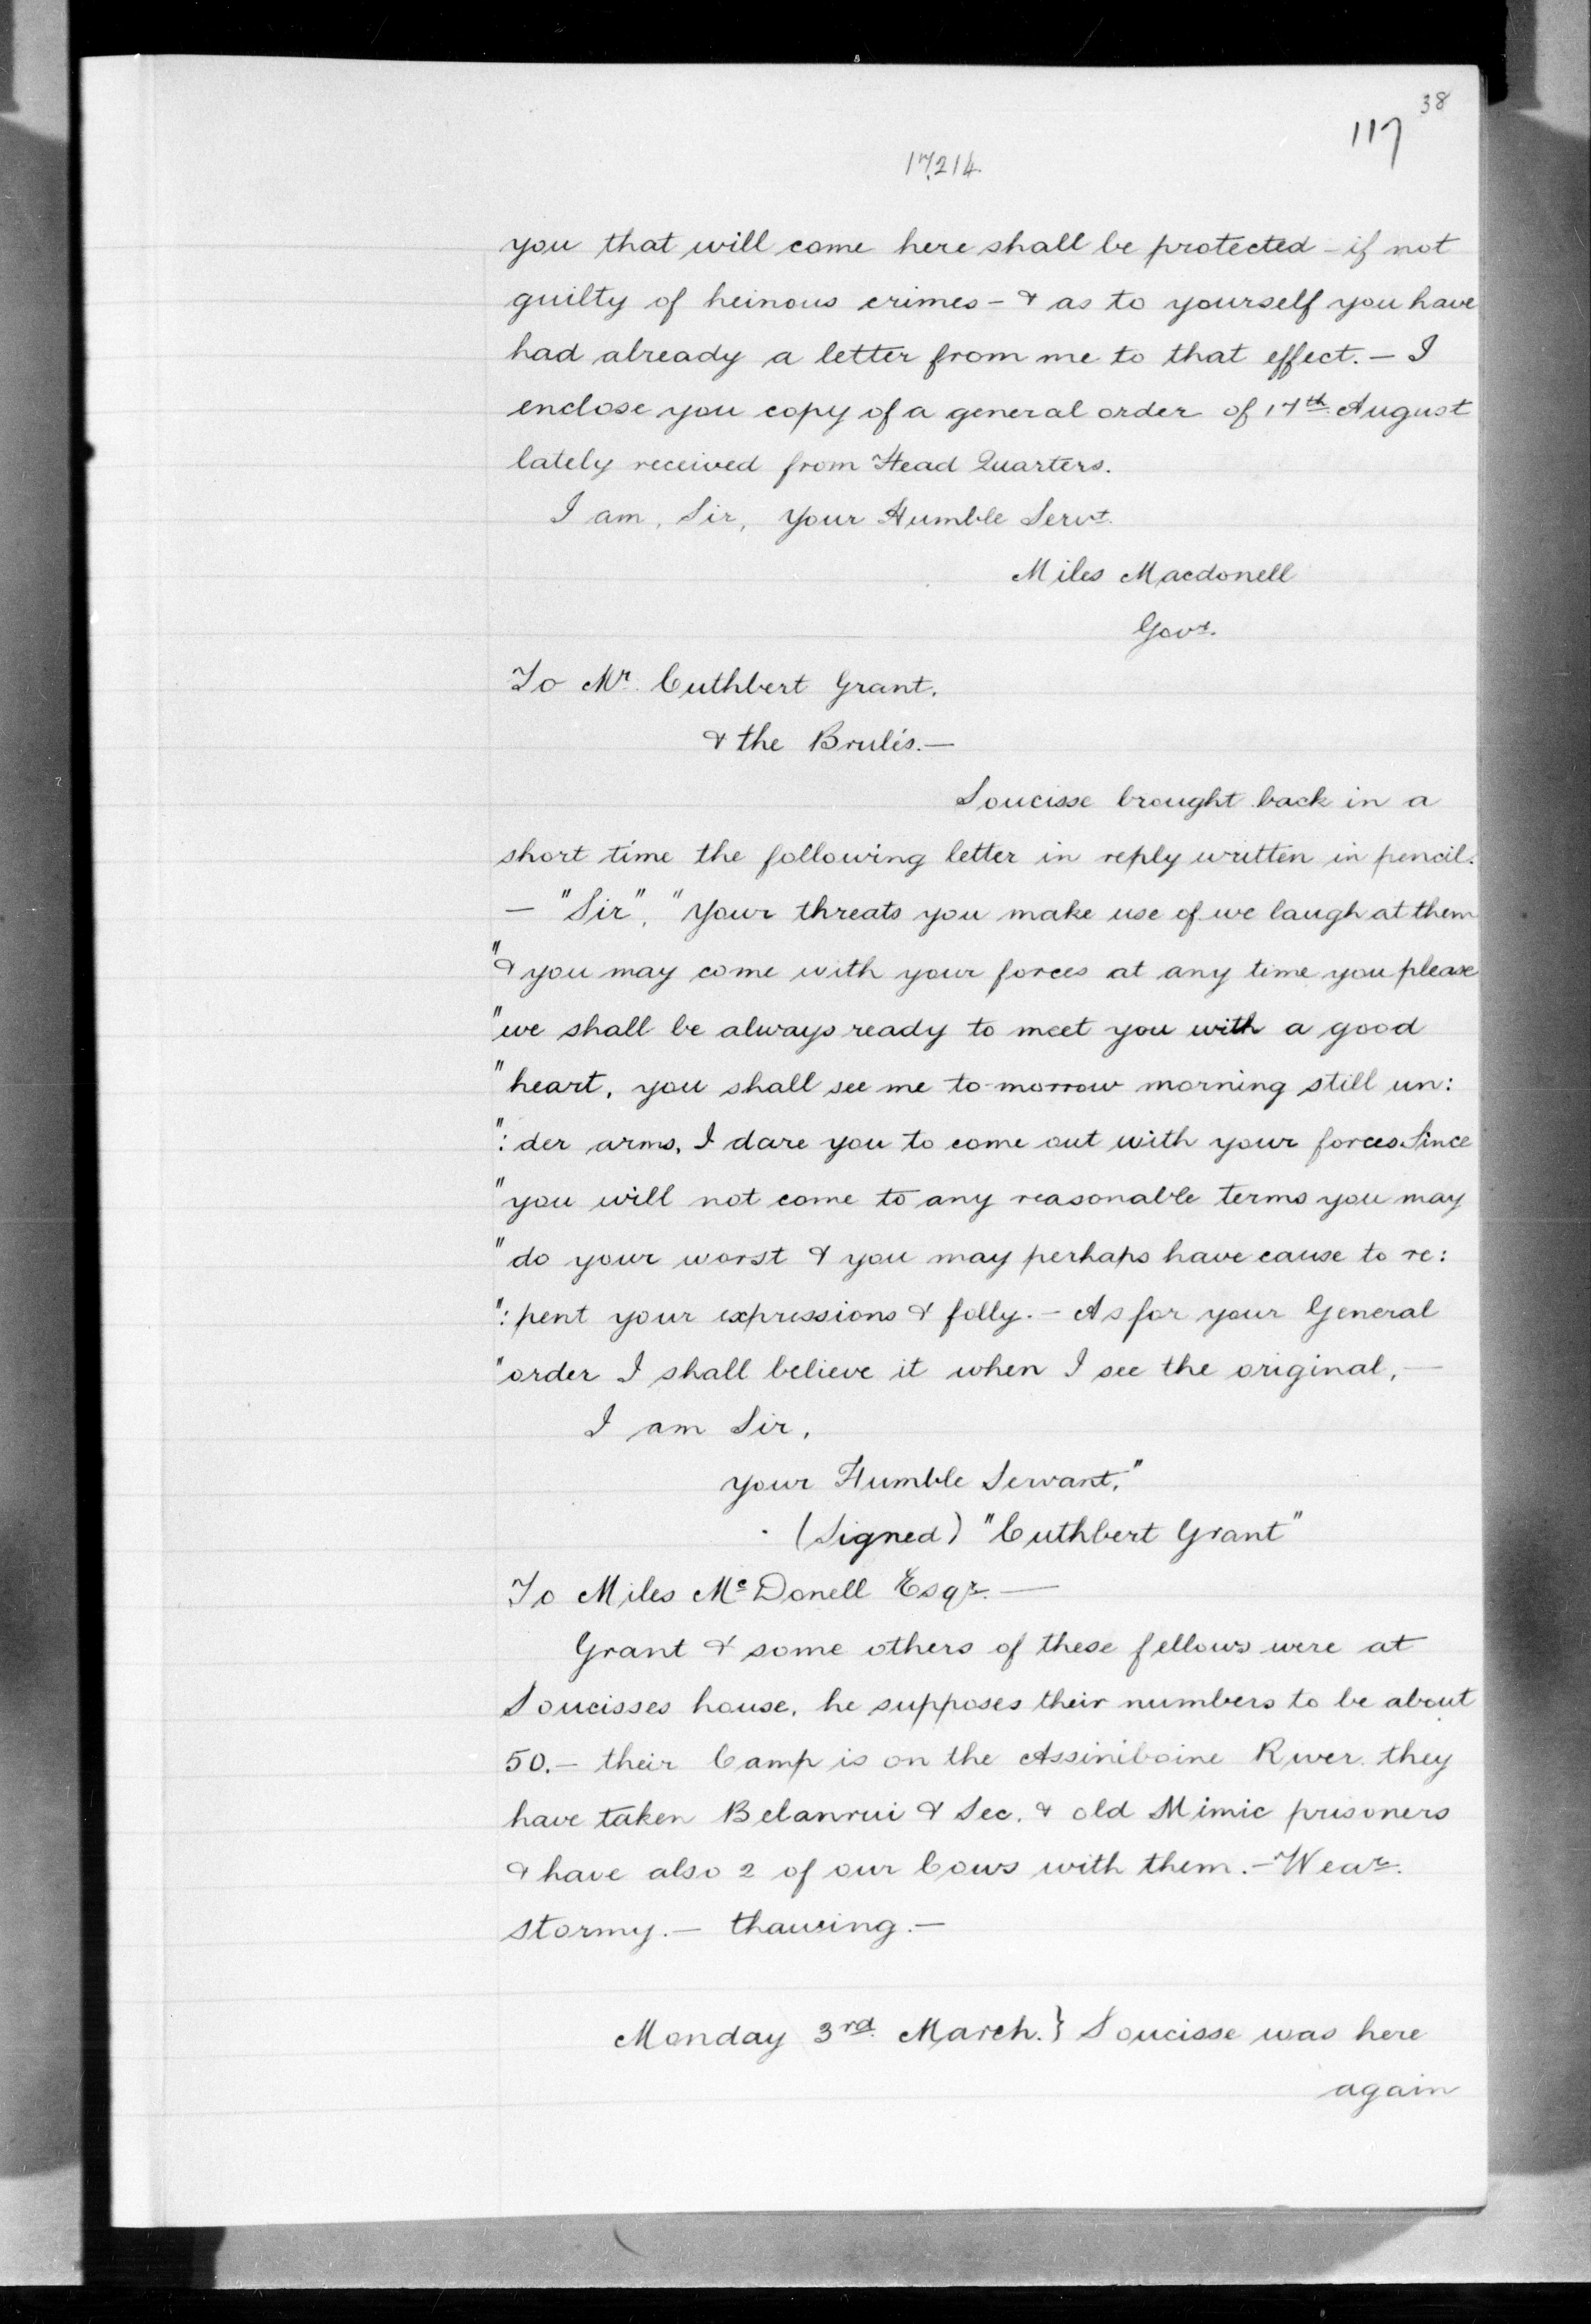 38
117
17,214.
you that will come here shall be protected - if not
guilty of heinous crimes - & as to yourself you have
had already a letter from me to that effect. - I
enclose you copy of a general order of 17th August
lately received from Head Quarters.
I am, Sir, Your Humble Servt.
Miles Macdonell
Govr.
To Mr. Cuthbert Grant.
& the Brulés. -
Soucisse brought back in a
short time the following letter in reply written in pencil.
- "Sir", "Your threats you make use of we laugh at them
"& you may come with your forces at any time you please
"we shall be always ready to meet you with a good
"heart, you shall see me to-morrow morning still un:
": der arms, I dare you to come out with your forces Since
"you will not come to any reasonable terms you may
"do your worst & you may perhaps have cause to re:
": pent your expressions & folly. - As for your General
"order I shall believe it when I see the original, -
I am Sir,
Your Humble Servant,"
(Signed) "Cuthbert Grant"
To Miles McDonell Esqr. -
Grant & some others of these fellows were at
Soucisses house, he supposes their numbers to be about
50. - their Camp is on the Assiniboine River. they
have taken Belanrui & Sec. & old Mimic prisoners
& have also 2 of our Cows with them. - Wear.
stormy. - thawing. -
Monday 3rd. March.} Soucisse was here
again